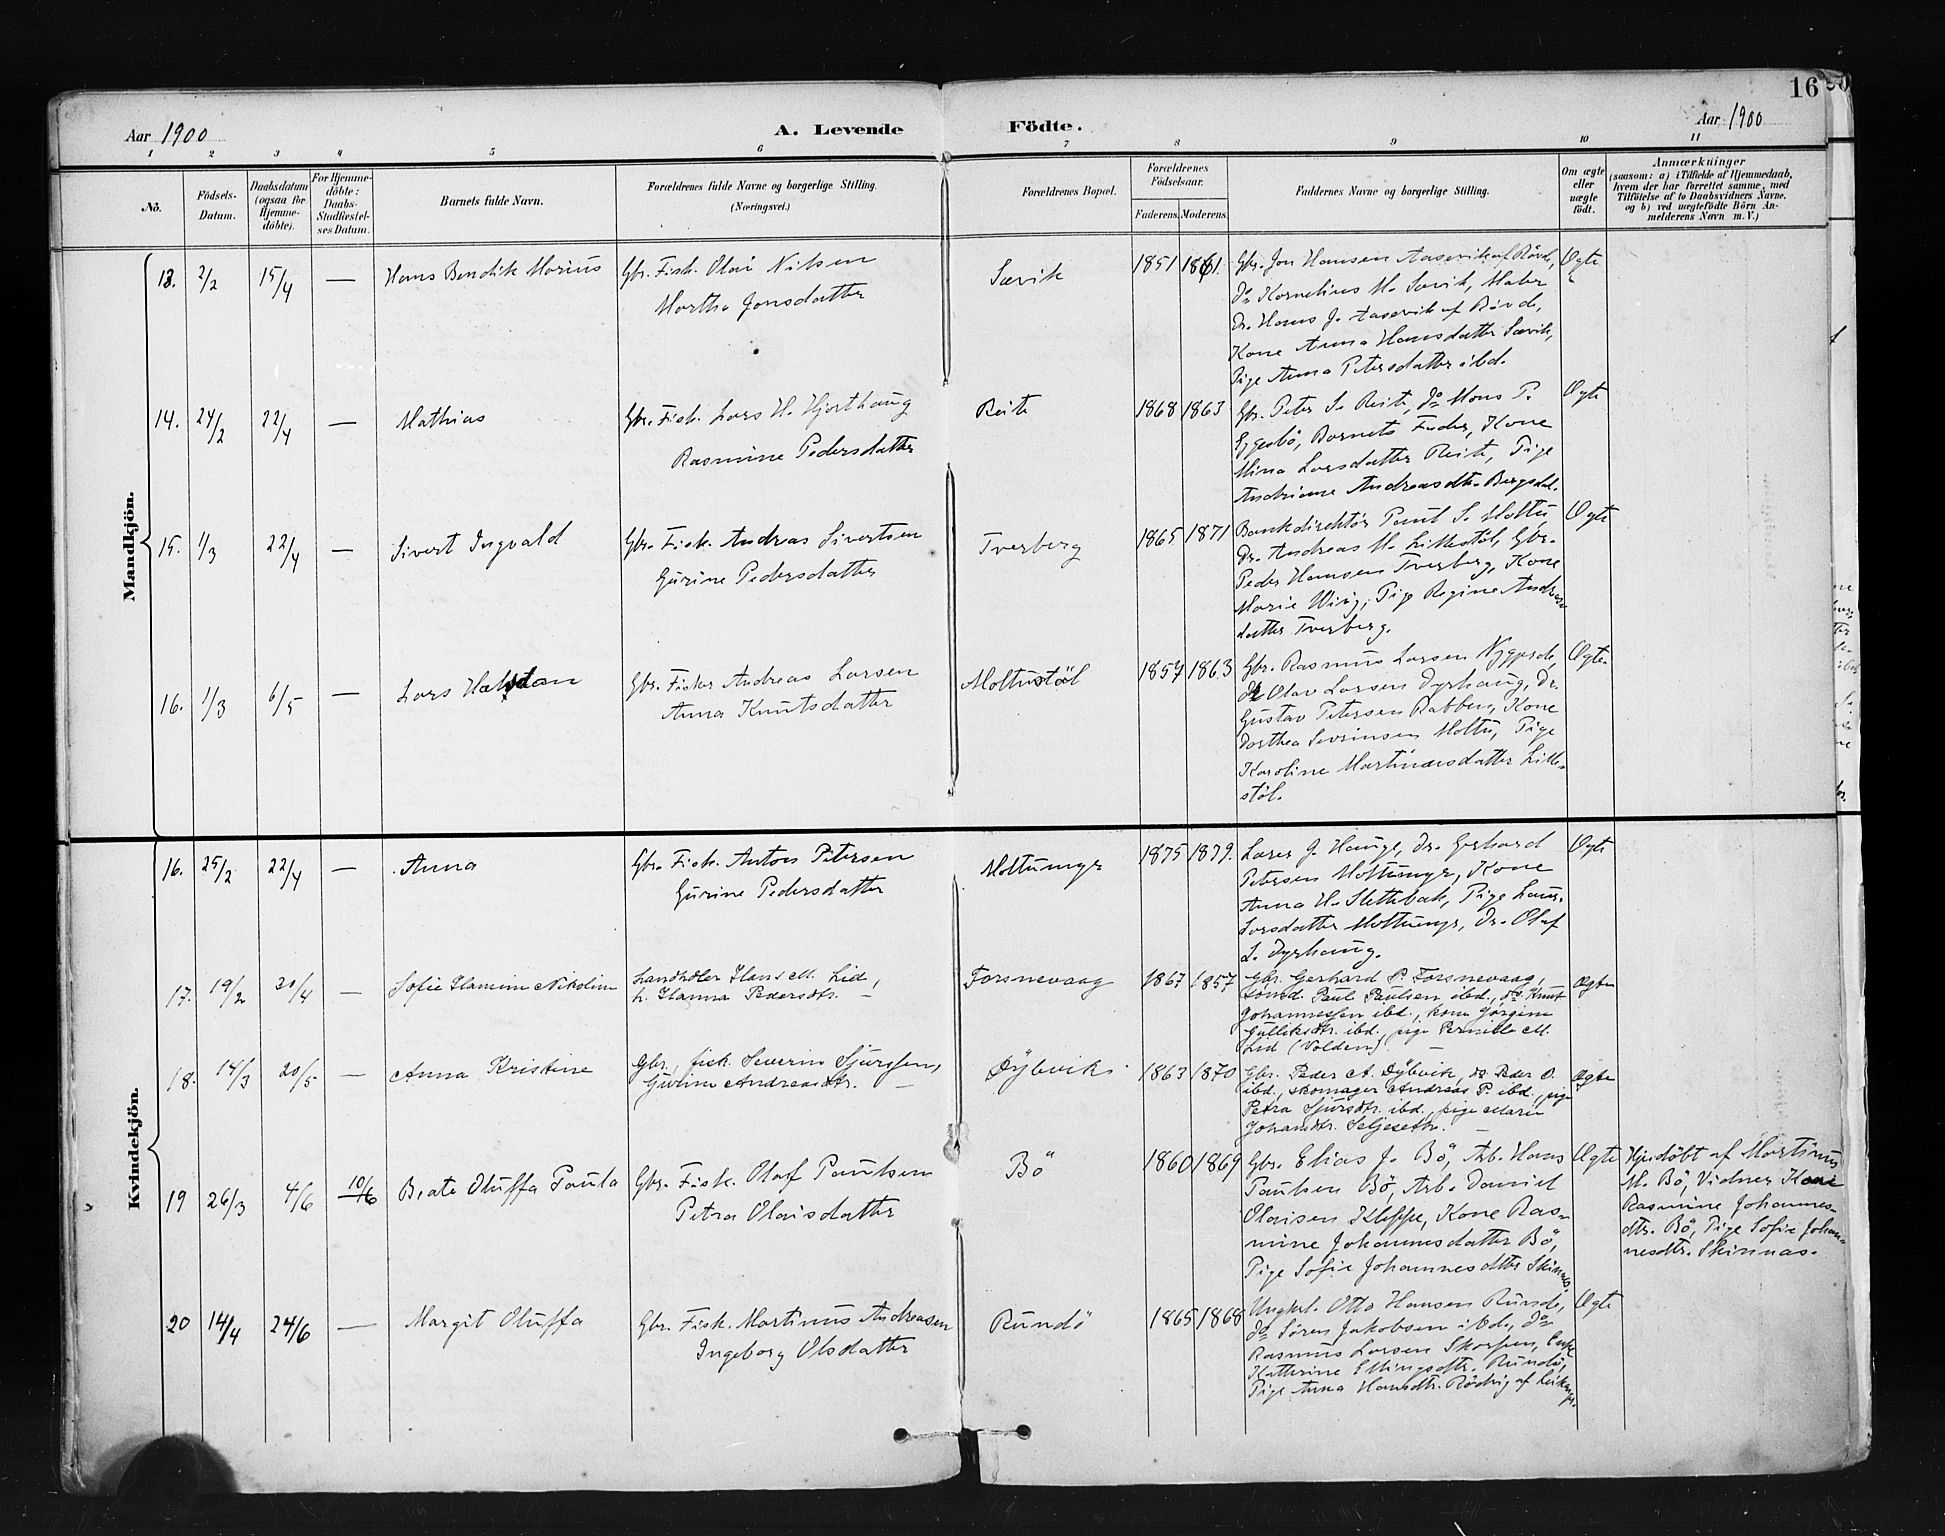 16
Aar 1900
A. Levende Födte.
Aar 1900
1 2 3 4 5 6 7 8 9 10 11
No.
Födsels-
Datum.
Daabsdatum
(ogsaa for
Hjemme-
döbte).
For Hjemme-
döbte:
Daabs-
Stadfæstel-
ses Datum.
Barnets fulde Navn.
Forældrenes fulde Navne og borgerlige Stilling.
(Næringsvei.)
Forældrenes Bopæl.
Forældrenes
Födselsaar.
Faderens. Moderens.
Faddernes Navne og borgerlige Stilling.
Om ægte
eller
uægte
födt.
Anmærkninger
(saasom: a) i Tilfælde af Hjemmedaab,
hvem der har forrettet samme, med
Tilföielse af to Daabsvidners Navne,
og b) ved uægtefödte Börn An-
melderens Navn m. V.)
Mandkjön.
13. 2/2 15/4 — Hans Bendik Marius
Gbr. Fisk. Olai Nilsen
Martha Jonsdatter
Sævik
1851 1861
Gbr. Jon Hansen Aasevik af Rövde,
do Kornelius M. Sævik, Maler
Dr. Hans J. Aasevik af Rövde,
Kone Anna Hansdatter Sævik,
Pige Anna Petersdatter ibd.
Ægte
14. 24/2 22/4 — Mathias
Gbr. Fisk. Lars H. Hjorthaug
Rasmine Pedersdatter
Reite
1868 1863
Gbr. Peter S. Reite, do Mons P.
Eggesbö, Barnets Fader, Kone
Mina Larsdatter Reite, Pige
Andriane Andreasdtr. Bergsdal.
Ægte
15. 1/3 22/4 — Sivert Ingvald
Gbr. Fisk. Andreas Sivertsen
Gurine Pedersdatter
Tverberg
1865 1871
Bankdirektör Paul S. Moltu,
Dr. Andreas M. Lillestöl, Gbr.
Peder Hansen Tverberg, Kone
Marie Wiig, Pige Regine Andreas-
datter Tverberg.
Ægte
16. 1/3 6/5 — Lars Halvdan
Gbr. Fisker Andreas Larsen
Anna Knutsdatter
Moltustöl
1857 1863
Gbr. Rasmus Larsen Nygjerde,
do Olav Larsen Dyrhaug, Dr.
Gustav Petersen Rabben, Kone
Dorthea Severinsen Moltu, Pige
Karoline Martinusdatter Lille-
stöl.
Ægte
Kvindekjön.
16. 25/2 22/4 — Anna
Gbr. Fisk. Anton Petersen
Gurine Pedersdatter
Moltumyr
1875 1879.
Lærer J. Hauge, Dr. Gerhard
Petersen Moltumyr, Kone
Anna H. Slettebak, Pige
Larsdatter Moltumyr, Dr. Olaf
L. Dyrhaug.
Ægte
17. 19/2 20/4 — Sofie Hamine Nikoline
Landhdler Hans M. Lid,
h. Hanna Pedersdtr. —
Torsnevaag
1867 1857
Gbr. Gerhard P. Torsnevaag,
Paul Paulsen ibd., do Knut
Johannessen ibd., kone Jörgine
Gulliksdtr. ibd., pige Pernille M.
Lid (Volden). —
Ægte
18. 14/3 20/5 — Anna Kristine
Gbr., fisk. Severin Sjurssen,
Gurine Andreasdtr. —
Dybvik
1863 1870
Gbr. Peder A. Dybvik, do Peder O.
ibd., skomager Andreas P. ibd., pige
Petra Sjursdtr. ibd., pige Marie
Johansdtr. Seljesetr. —
Ægte
19 26/3 4/6 10/6 Beate Oluffa Paula
Gbr. Fisk. Olaf Paulsen
Petra Olaisdatter
Bö
1860 1869
Gbr. Elias J. Bö, Arb. Hans
Paulsen Bö, Arb. Daniel
Olaisen Kleppe, Kone Ras-
mine Johannesdatter Bö,
Pige Sofie Johannesdtter Skinnes
Ægte
Hjmdöbt af Martinus
M. Bö, Vidner Kone
Rasmine Johannes-
dtr. Bö, Pige Sofie Johan-
nesdtr. Skinnes.
20 14/4 24/6 — Margit Oluffa
Gbr. Fisk. Martinus Andreasen
Ingeborg Olsdatter
Rundö
1865 1868
Ungkl. Otto Hansen Runde,
do Sören Jakobsen ibd., do
Rasmus Larsen Skorpen, Enke
Kathrine Ellingsdtr. Rundö,
Pige Anna Hansdtr. Rödvig af Leikanger.
Ægte